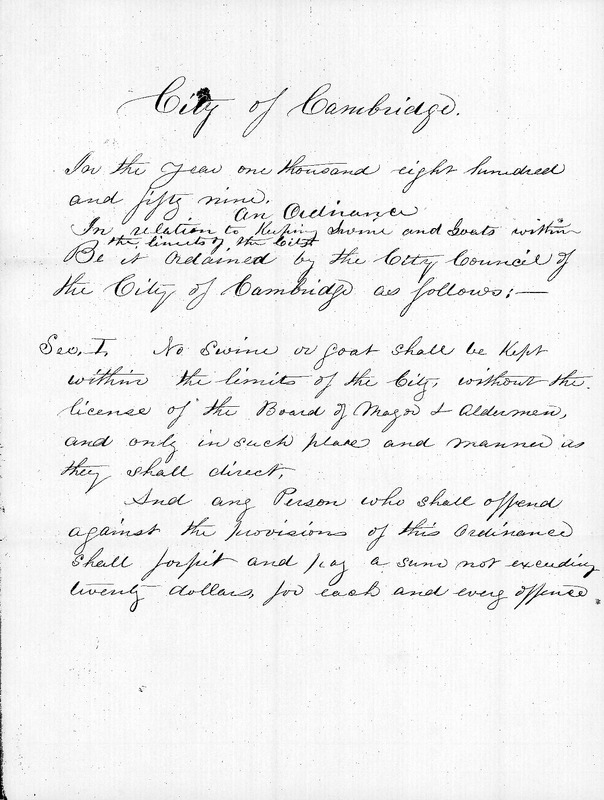 City of Cambridge.
In the year one thousand eight hundred
and fifty nine.
An Ordinance
In relation to Keeping Swine and Goats within
the limits of the City
Be it Ordained by the City Council of
the City of Cambridge as follows:—
Sec. I. No Swine or Goat shall be Kept
within the limits of the City, without the
license of the Board of Mayor & Aldermen,
and only in such place and manner as
they shall direct.
And any Person who shall offend
against the provisions of this Ordinance
shall forfit and pay a sum not exceeding
twenty dollars, for each and every offence